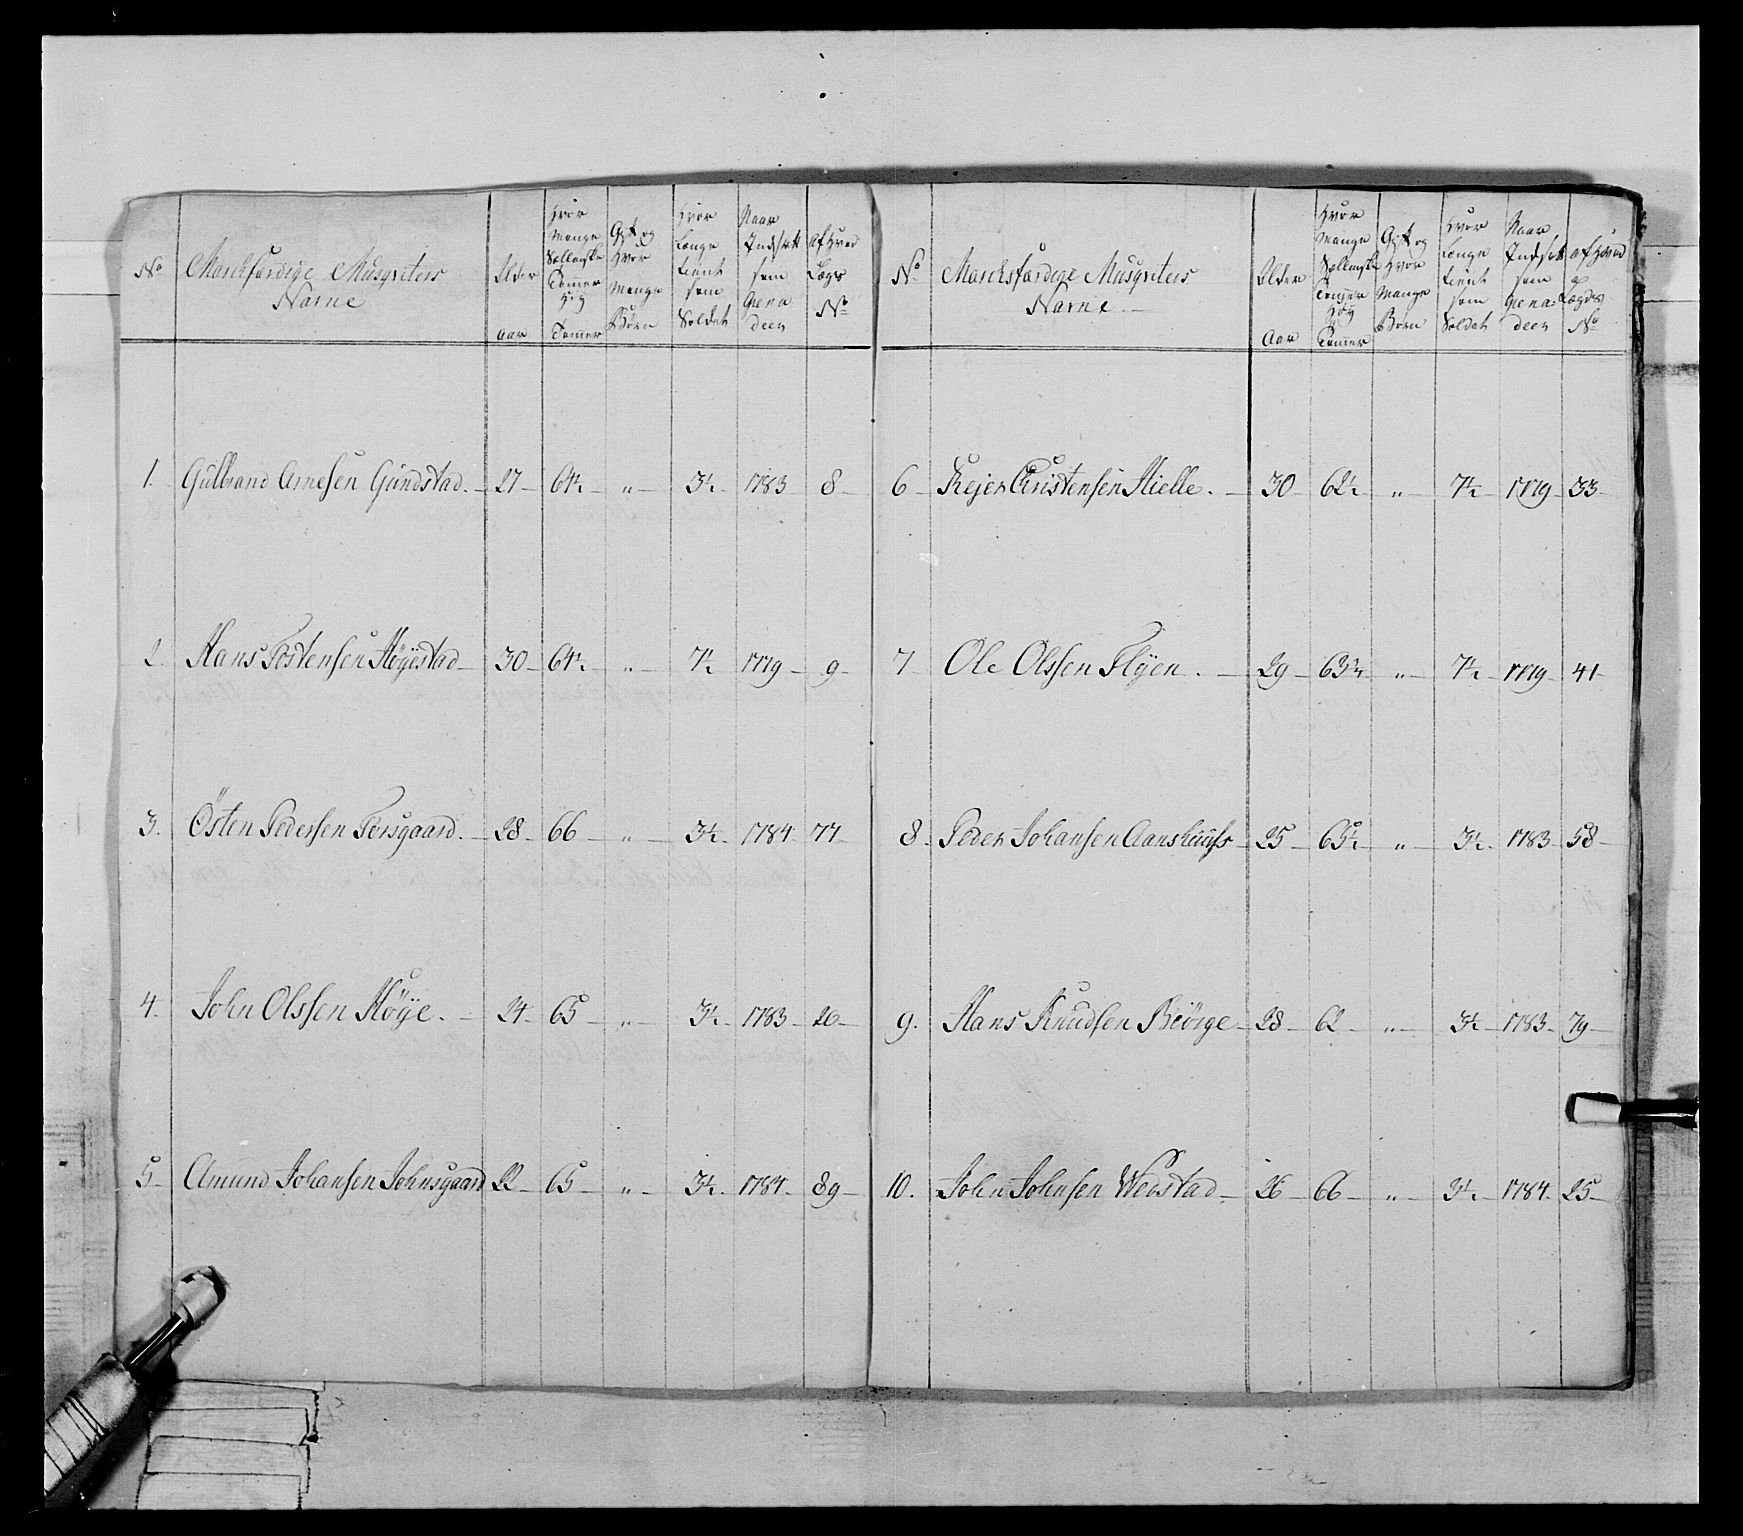 No
Marchfærdige Musqviters
Navne
Alder
Aar
Hvor
Mange
Sællandske
Tommer
Høy
Tommer
Gift og
Hvor
Mange
Børn
Hvor
Længe
tient
som
Soldat
Naar
Indsatt
som
Gena
deer
Af Hvad
Lægs
No
1. Gulbrand Arnesen Gundstad. 27 64½ " 3½ 1783 8
2. Hans Tostensen Høyestad 30 64½ " 7½ 1779 9
3. Östen Pedersen Forsgaard. 28 66 " 3½ 1784 77
4. John Olssen Høÿe. 24 65 " 3½ 1783 26
5. Amund Johansen Johnsgaard 22 65 " 3½ 1784 89
No
Marchsfærdige Musqviters
Navne.
Alder
Aar
Hvor
Mange
Sællandske
Tommer
Høy
Tommer
Gift og
Hvor
Mange
Børn
Hvor
Længe
tient
som
Soldat
Naar
Indsatt
som
Gena
deer
af Hvad
Lægds
No
6 Rejer Christensen Hielle. 30 62½ " 7½ 1779 33
7 Ole Olssen Flÿen. 29 63¾ " 7½ 1779 41
8. Peder Johansen Aanshuuss 25 65½ " 3½ 1783 58
9. Hans Knudsen Biörge 28 62 " 3½ 1783 79
10. John Johnsen Webstad 26 66 " 3½ 1784 25